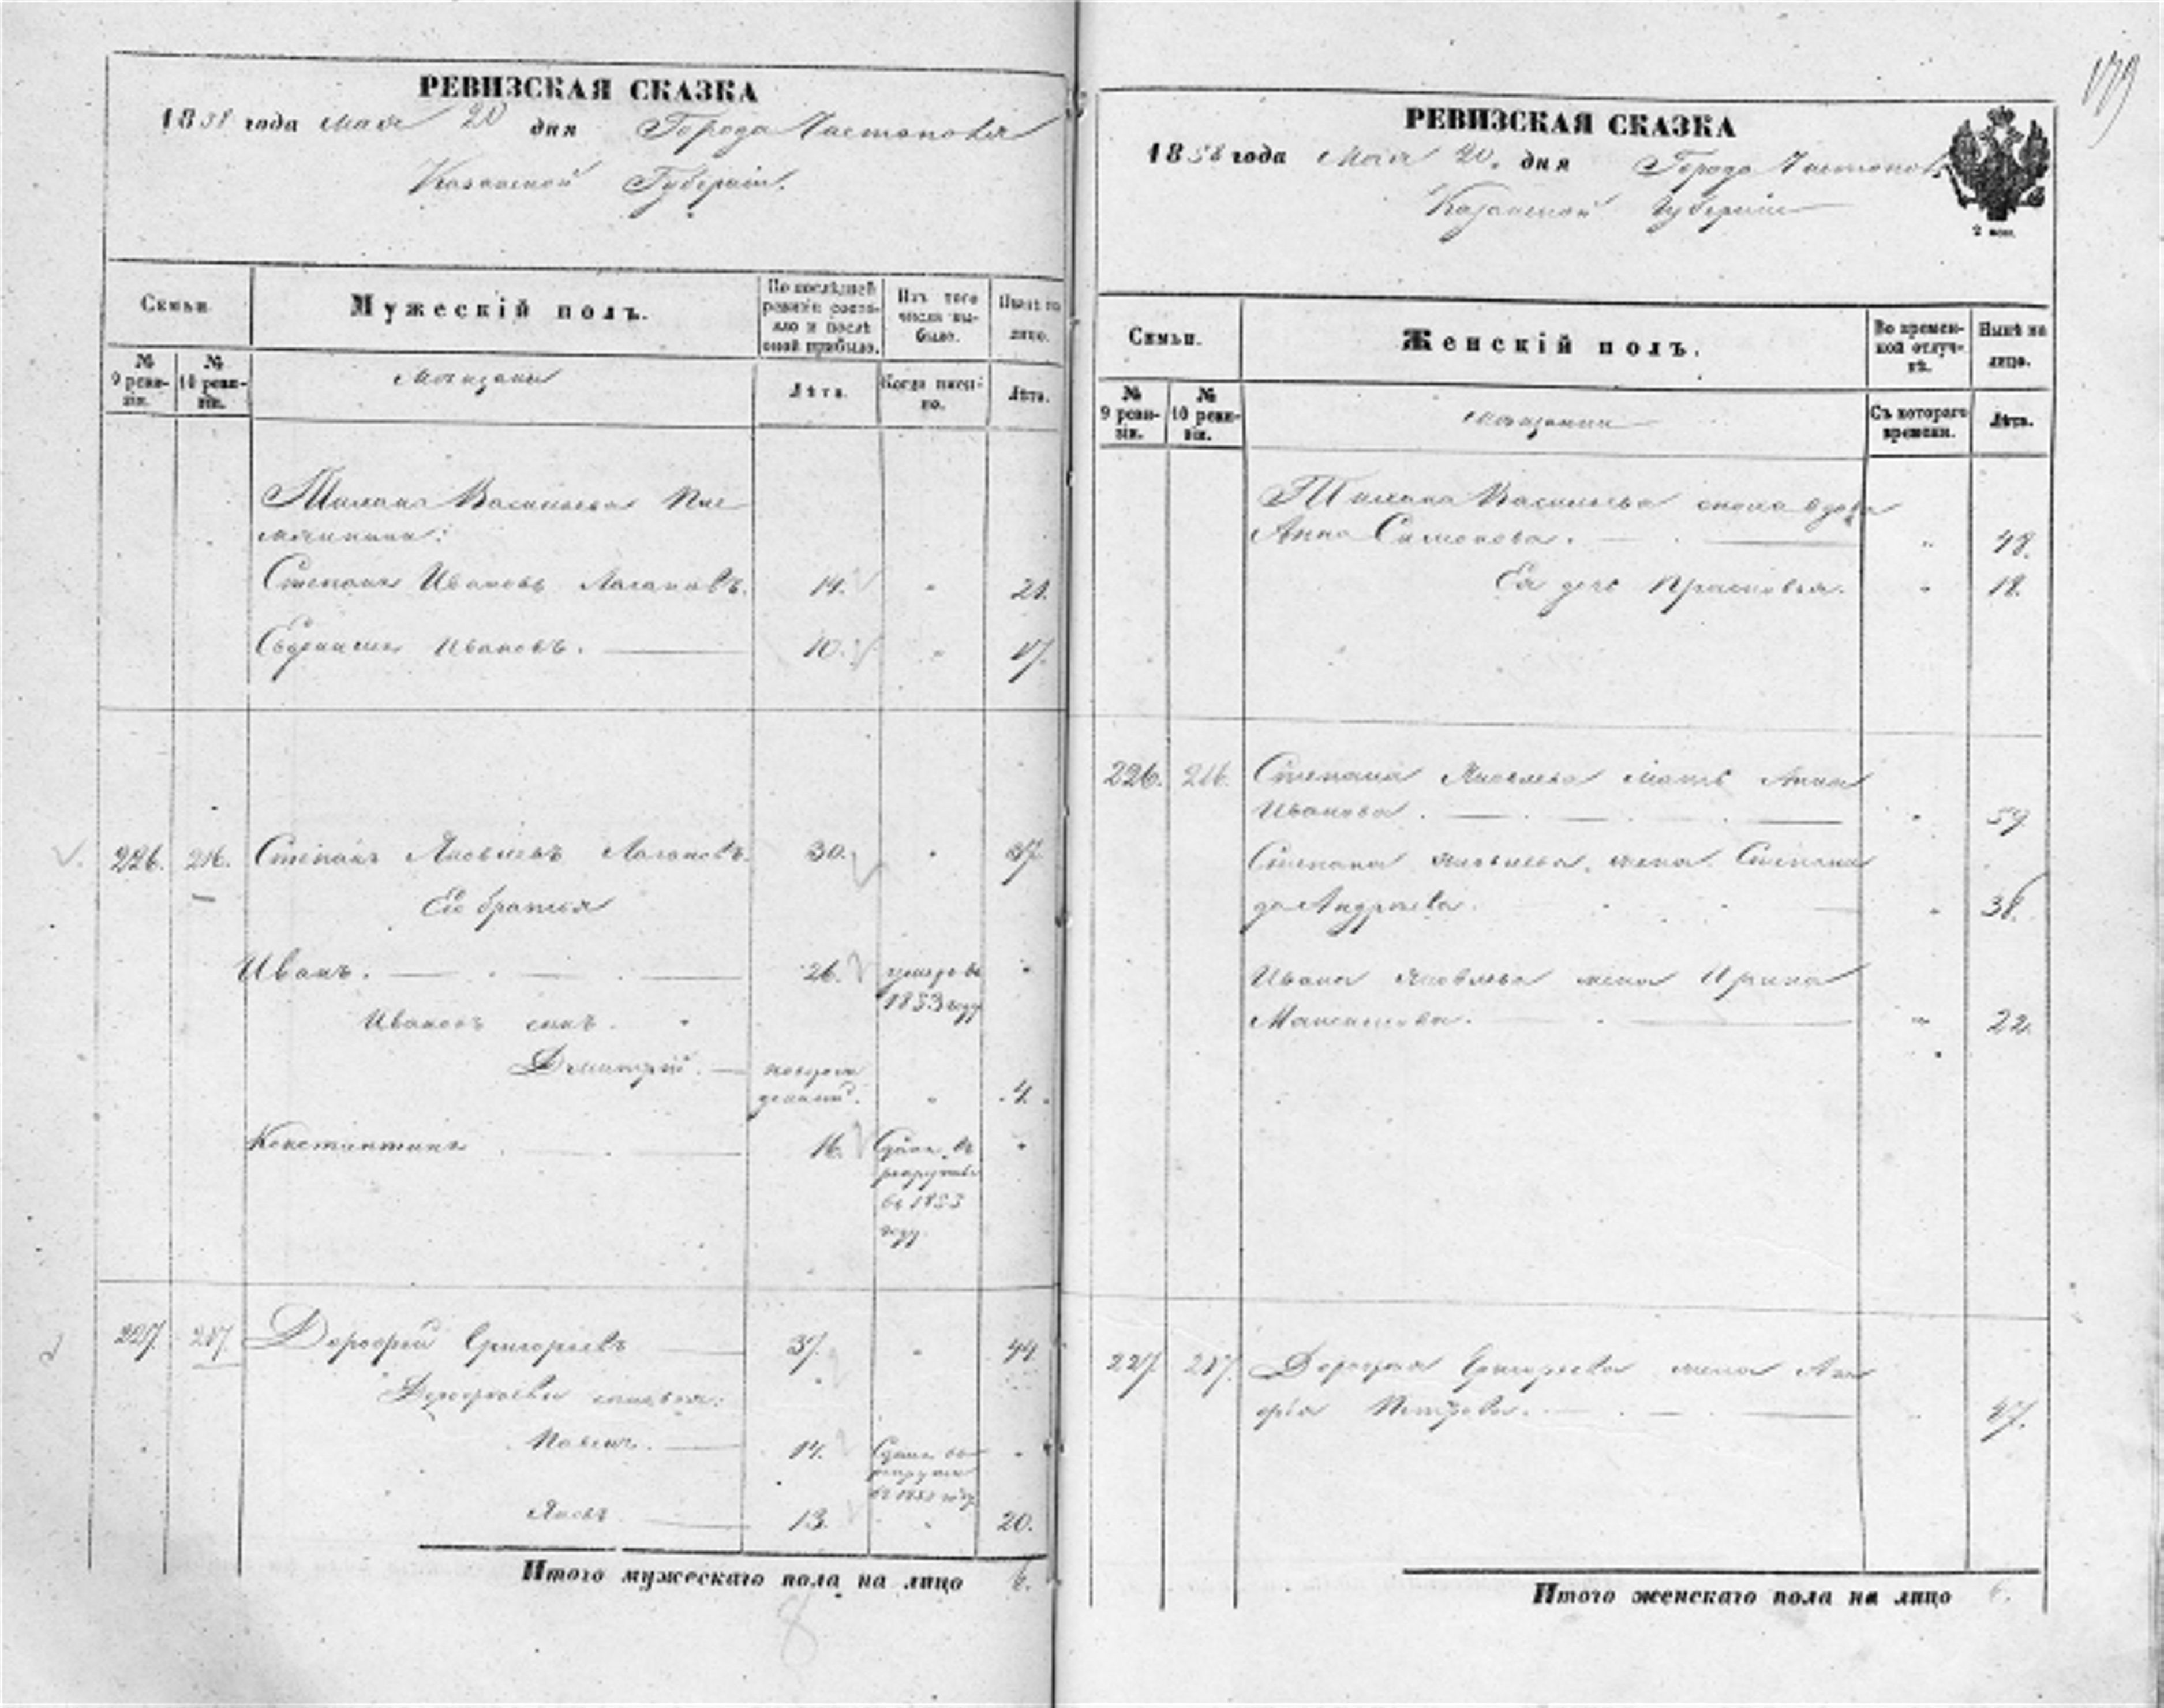 179
РЕВИЗСКАЯ СКАЗКА
1858 года мая 20 дня Города Чистополя
Казанской Губернии.
Семьи.
Мужескій полъ.
По послѣдней ревизіи состояло и послѣ оной прибыло.
Изъ того числа выбыло.
Нынѣ на лицо.
№ 9 ревизіи.
№ 10 ревизіи.
мѣщане
Лѣта.
Когда имянно.
Лѣта.
Васильева Пле
мянники:
Степанъ Ивановъ 14. " 21.
Ивановъ. 10. " 17.
226. 216. Степанъ Яковлевъ 30. " 37.
Его братья
Иванъ. 26. умеръ въ "
1853 году
Ивановъ сынъ.
Дмитрій. после ре
" 4.
Константинъ 16. Сданъ въ "
рекруты
въ 1853
году
227. 217. Дорофей Григорьевъ 37. " 44
Дорофеевы сыновья:
Павелъ. 17. Сданъ въ "
рекруты
Яковъ 13. " 20.
Итого мужескаго пола на лицо 6.
8
РЕВИЗСКАЯ СКАЗКА
1858 года Мая 20. дня Города Чистополя
Казанской Губернии
2 коп.
Семьи.
Женскій полъ.
Во временной отлучкѣ.
Нынѣ на лицо.
№ 9 ревизіи.
№ 10 ревизіи.
мѣщанки
Съ котораго времени.
Лѣта.
Васильева сноха вдова
Анна Симонова. " 48.
Ея дочь Прасковья. " 18.
226. 216. Степана Яковлева мать Анна
Иванова. " 59
Степана Яковлева жена Степани
да Андреева. " 36.
Ивана Яковлева жена Ирина
Максимова. " 22.
227. 217. Дорофея Григорьева жена
Петрова. " 47.
Итого женскаго пола на лицо 6.